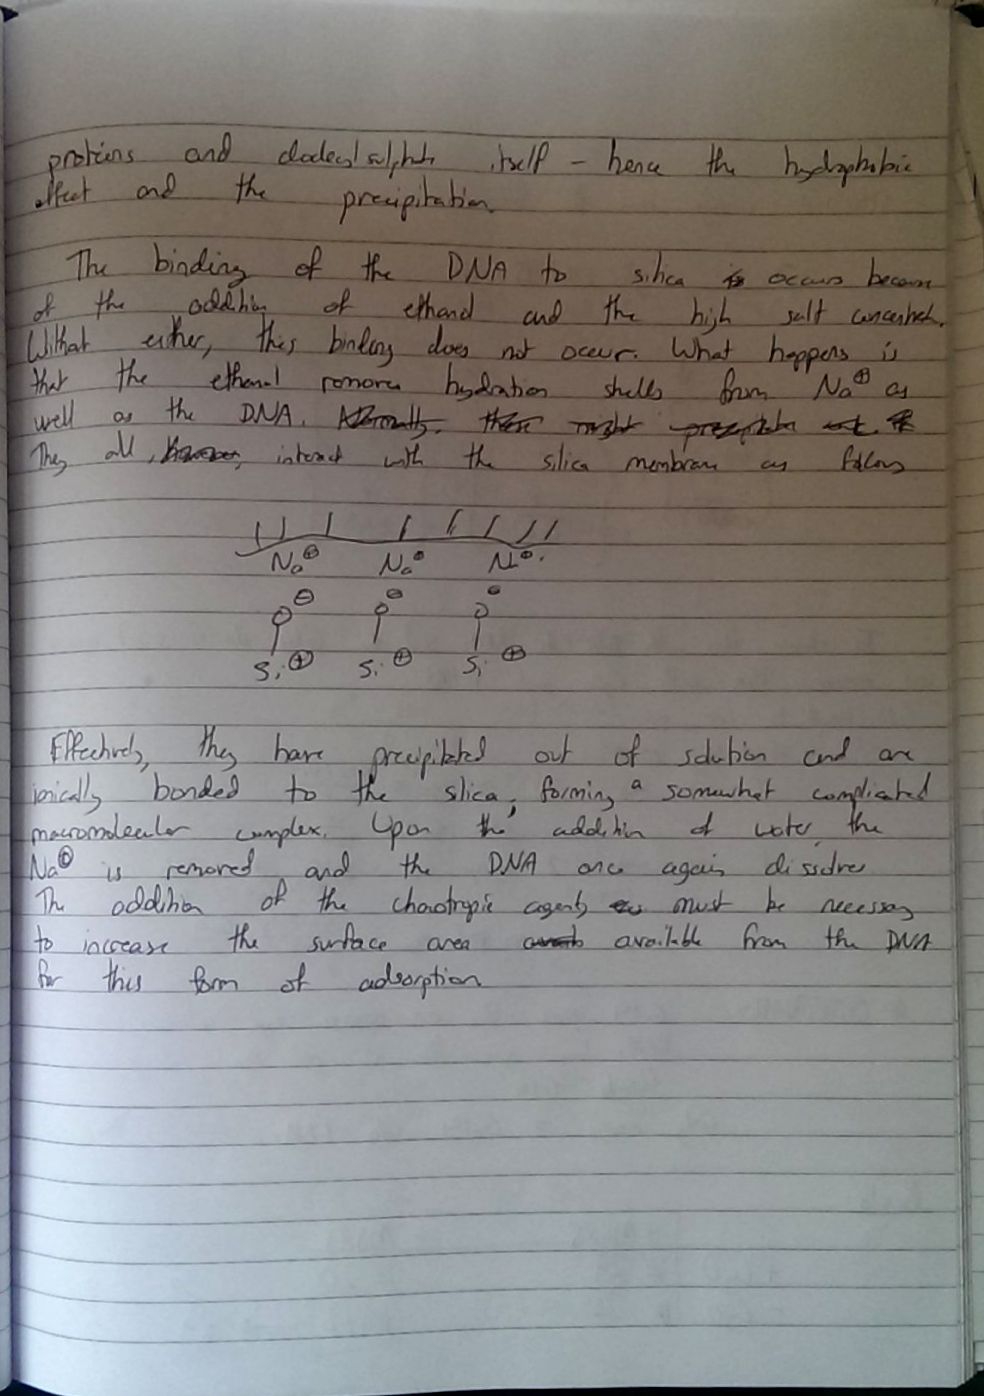 proteins and dodecylsulphate itself – hence the hydrophobic
effect and the precipitation.
The binding of the DNA to silica is occurs because
of the addition of ethanol and the high salt concentration.
Without either, this binding does not occur. What happens is
that the ethanol removes hydration shells from Na⊕ as
well as the DNA. Normally, there might precipitate out.
They all, however, interact with the silica membrane as follows
Na⊕ Na⊕ Na⊕.
O⊖ O⊖ O⊖
Si⊕ Si⊕ Si⊕
Effectively, they have precipitated out of solution and are
ionically bonded to the silica, forming a somewhat complicated
macromolecular complex. Upon the addition of water, the
Na⊕ is removed and the DNA once again dissolves
The addition of the chaotropic agents must be necessary
to increase the surface area available from the DNA
for this form of adsorption.